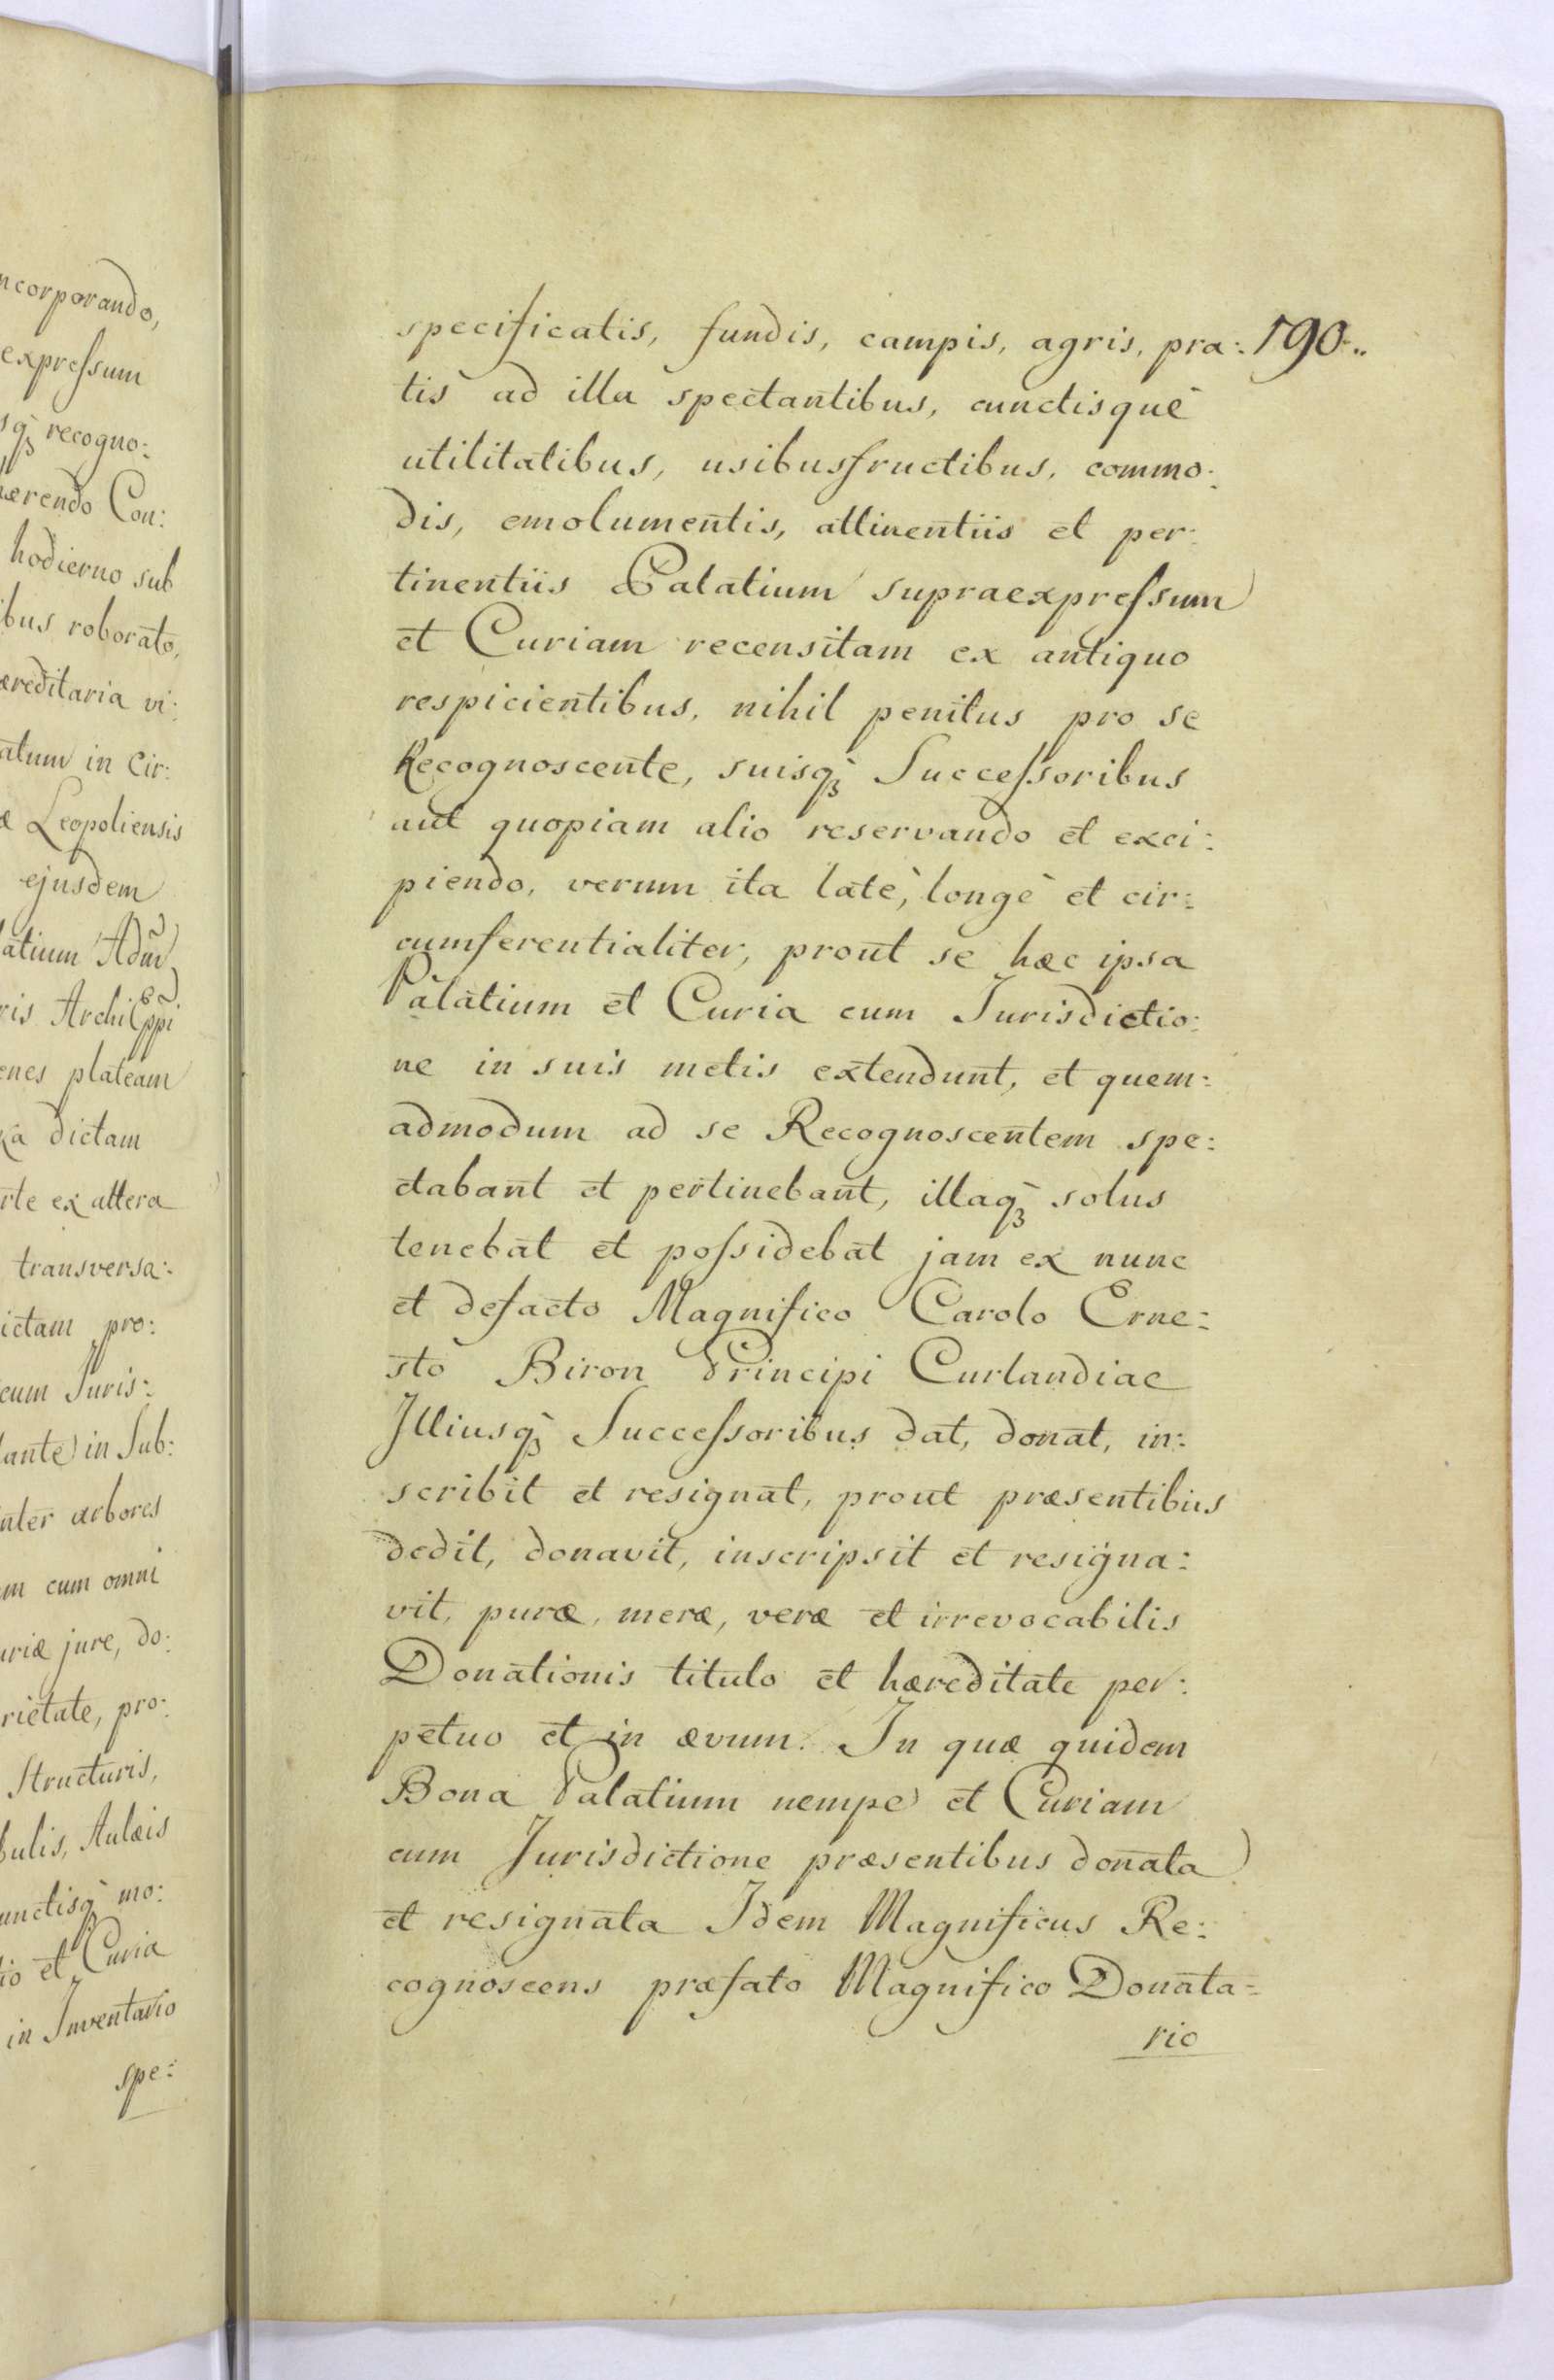 ncorporando,
expreſsum
sq̀ȝ recogno:
hærendo Con:
hodierno sub
ibus roborato,
æreditaria vi:
atum in Cir:
æ Leopoliensis
ejusdem
latium
ris
enes plateam
ka dictam
rte ex altera
transversa:
ictam pro:
cum Juris:
lante in Sub:
nter arbores
m cum omni
uriæ jure, do:
rietate, pro:
Structuris,
bulis, Aulæis
unctisq̀ mo:
io et Curia
in Inventario
spe:
specificatis, fundis, campis, agris, pra: 190..
tis ad illa spectantibus, cunctisquè
utilitatibus, usibusfructibus, commo:
dis, emolumentis, attinentiis et per:
tinentiis Palatium supraexpreſsum
et Curiam recensitam ex antiquo
respicientibus, nihil penitus pro se
Recognoscente, suisq̀ȝ Succeſsoribus
aut quopiam alio reservando et exci:
piendo, verum ita latè, longè et cir:
cumferentialiter, prout se hæc ipsa
Palatium et Curia cum Jurisdictio:
ne in suis metis extendunt, et quem:
admodum ad se Recognoscentem spe:
ctabant et pertinebant, illaq̀ȝ solus
tenebat et poſsidebat jam ex nunc
et defacto Magnifico Carolo Erne:
sto Biron Principi Curlandiae
Illiusq̀ȝ Succeſsoribus dat, donat, in:
scribit et resignat, prout præsentibus
dedit, donavit, inscripsit et resigna:
vit, puræ, meræ, veræ et irrevocabilis
Donationis titulo et hæreditate per:
petuo et in ævum. In quæ quidem
Bona Palatium nempe et Curiam
cum Jurisdictione præsentibus donata
et resignata Idem Magnificus Re:
cognoscens præfato Magnifico Donata=
rio